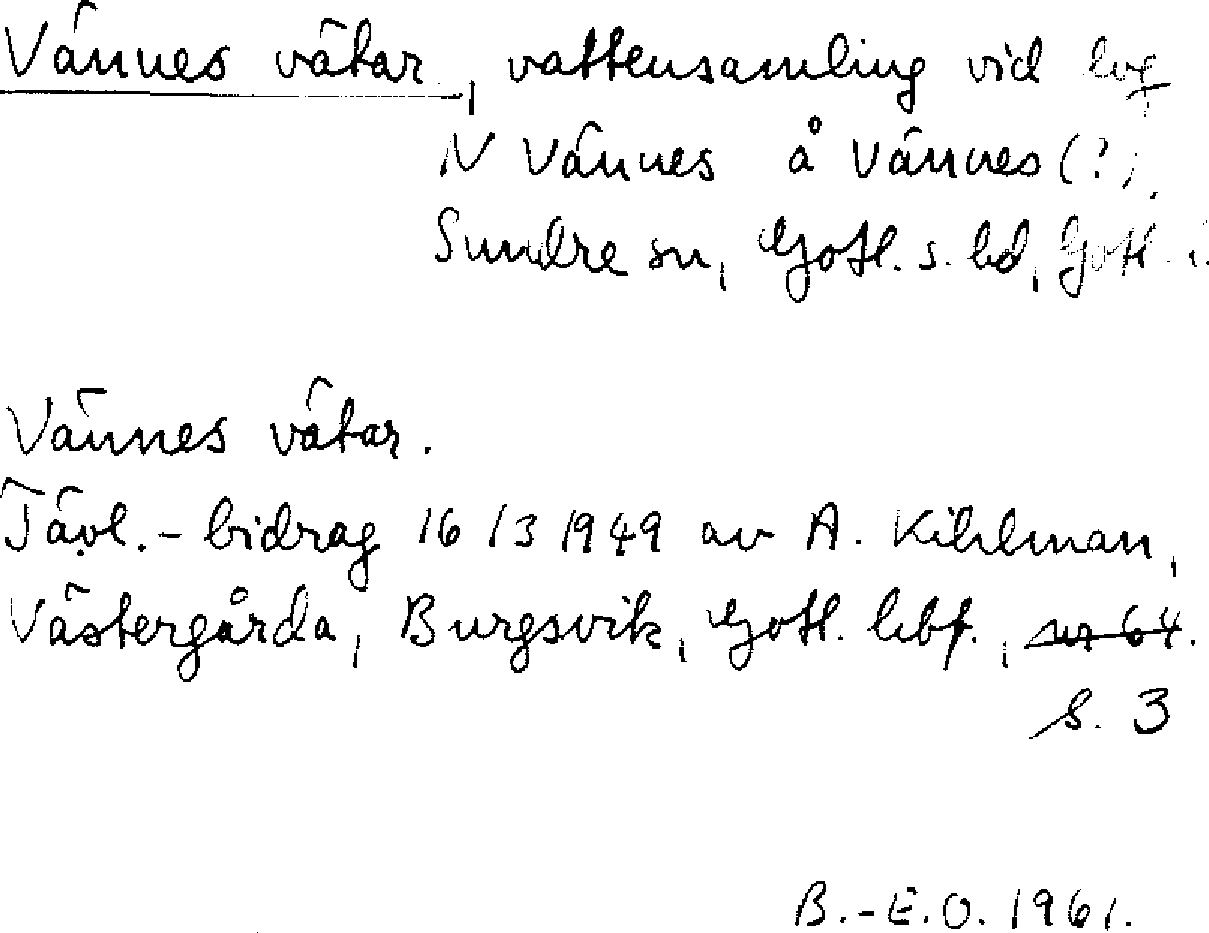 Vännes vätar, vattensamling vid lvg
N Vännes å Vännes (?),
Sundre sn, Gotl. s. hd, Gotl.
Vännes vätar.
Tävl.-bidrag 16/3 1949 av A. Kihlman,
Västergårda, Burgsvik, Gotl. hbf., nr 64.
s. 3
B.-E.O. 1961.